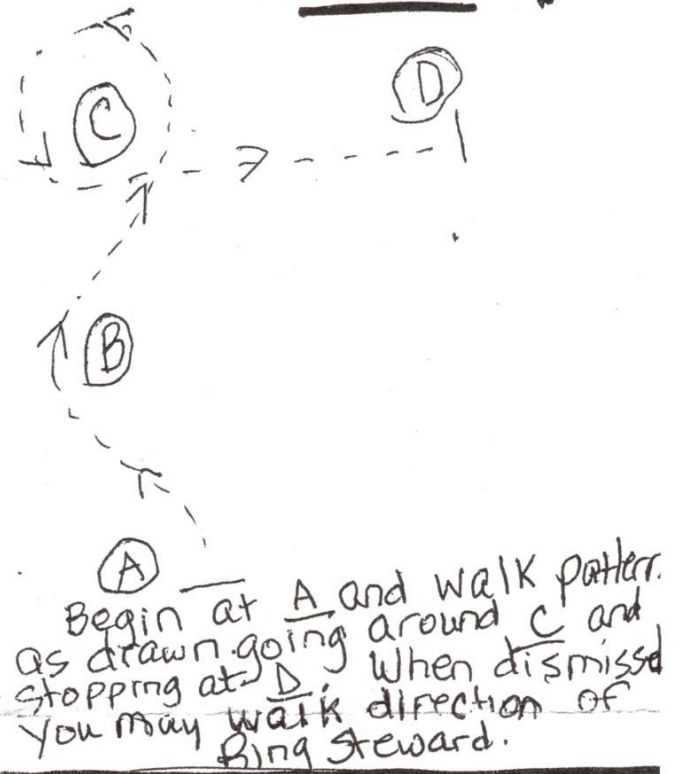 C
D
B
A
Begin at A and walk pattern
as drawn. going around C and
stopping at D. When dismissd
you may walk direction of
Ring Steward.